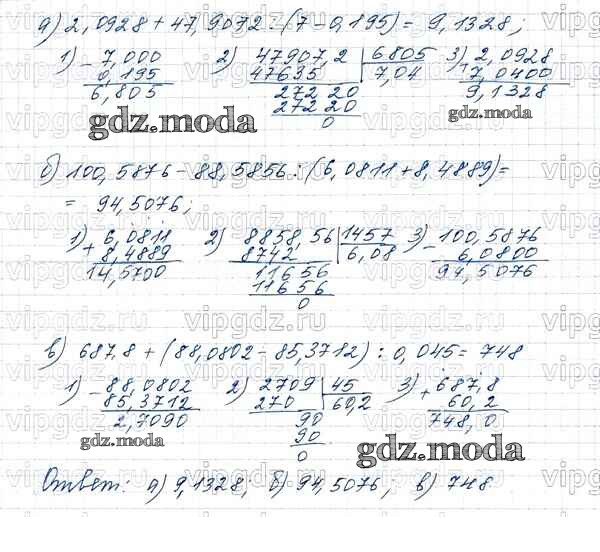 а) 2,0928 + 47,9072 : (7 - 0,195) = 9,1328;
1) - 7,000 2) 47907,2 | 6805 3) + 2,0928
0,195 47635 7,04 7,0400
6,805 27220 9,1328
27220
0
gdz.moda
б) 100,5876 - 88,5856 : (6,0811 + 8,4889) =
= 94,5076;
1) + 6,0811 2) 8858,56 | 1457 3) - 100,5876
8,4889 8742 6,08 6,0800
14,5700 11656 94,5076
11656
0
в) 687,8 + (88,0802 - 85,3712) : 0,045 = 748
1) - 88,0802 2) 2709 | 45 3) + 687,8
85,3712 270 60,2 60,2
2,7090 90 748,0
90
0
gdz.moda
gdz.moda
Ответ: а) 9,1328; б) 94,5076; в) 748
vipgdz.ru